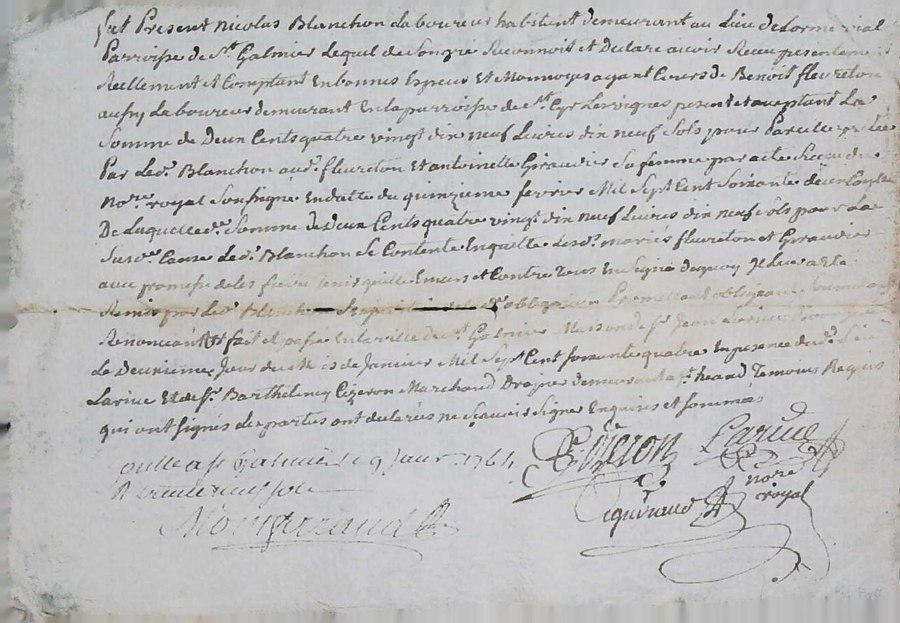 fut Present Nicolas Blanchon Laboureur habitent demeurant au Lieu de Lorme
Parroisse de St. Galmier Lequel de Son gre Reconnoit et Declare avoir Receu presentement
Reellement et Comptant En bonnes Especes Et Monnoyes ayant Cours de Benoit fleureton
aussy Laboureur demeurant En la parroisse de St. Cyr Les vignes present et acceptant La
Somme de Deux Cents quatre vingt dix neuf Livres dix neuf Sols pour Pareille
Par Led. Blanchon aud. fleureton Et antoinette Giraudier Sa femme par acte Receu du
Nore. royal Soussigne En datte du quinzieme fevrier Mil Sept Cent Soixante deux
De Laquelle de. Somme de Deux Cents quatre vingt dix neuf Livres dix neuf sols pour La
Susde. Cause Led. Blanchon Se Contente En quitte Lesd. maries fleureton et Giraudier
avec promesse de les faire tenir quitte Envers et Contre Tous En Signe de quoy Il Leur a Ete
Remis par Led. Blanchon obligation Promettant obligeant Soumettant
Renonceant Et fait et passe En la ville de St. Galmier Maison de Sr. Jean Larive
Le Deuxieme Jour du Mois de Janvier Mil Sept Cent soixante quatre En presence dud. Sr.
Larive Et de Sr. Barthelemy Cizeron Marchand demeurant Temoins Requis
qui ont signés Les parties ont declarés ne Scavoir Signer Enquises et sommés
Galmier Le 9 Janv. 1764
Cizeron Larive
nore
royal